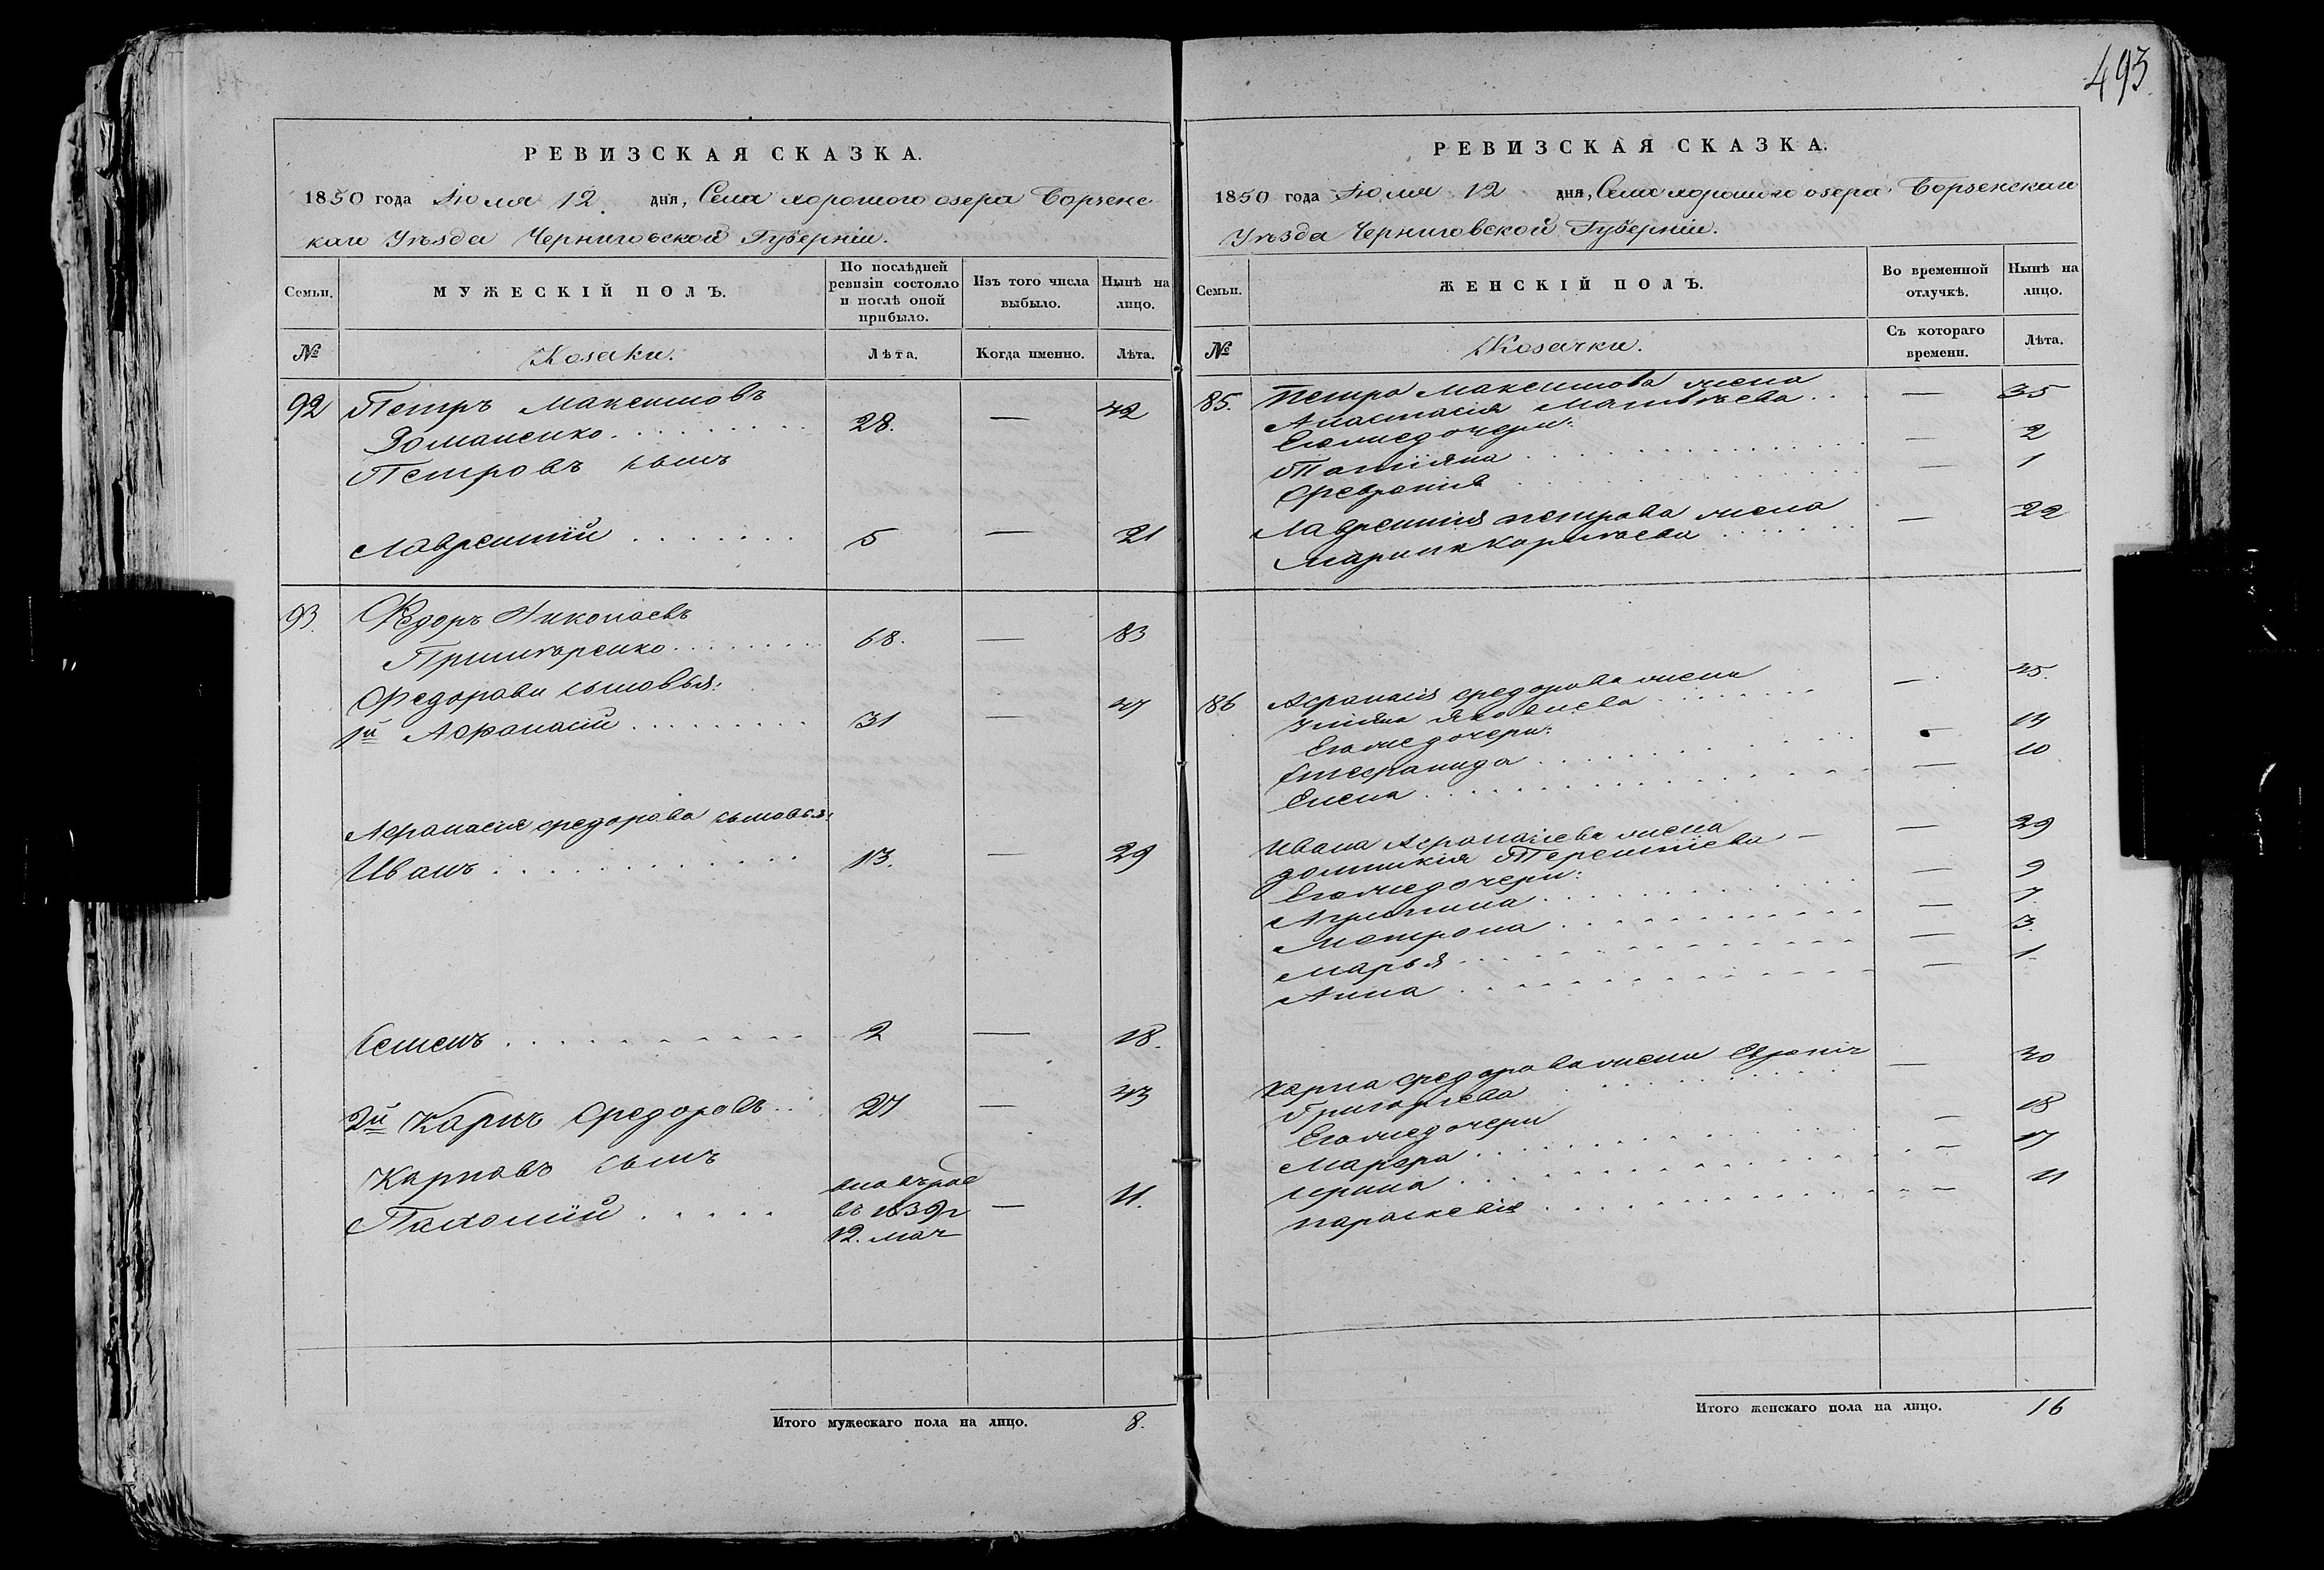 493
РЕВИЗСКАЯ СКАЗКА.
1850 года Июля 12 дня, Села хорошого озера Борзенс
каго Уѣзда Черниговской Губерніи.
Семьи.
МУЖЕСКІЙ ПОЛЪ.
По послѣдней ревизіи состояло и послѣ оной прибыло.
Изъ того числа выбыло.
Нынѣ на лицо.
№
Козаки.
Лѣта.
Когда именно.
Лѣта.
92 Петръ Максимовъ
Романенко 28. — 42
Петровъ сынъ
Лаврентій 5 — 21
93. Федоръ Николаевъ
68. — 83
Федорови сыновья:
1й Афанасій 31 — 47
Афанасия федорова сыновья:
Иванъ 13. — 29
Семенъ 2 — 18.
2й Карпъ Федоровъ 27 — 43
Карповъ сынъ
въ 1839г — 11.
12. мач
Итого мужескаго пола на лицо. 8.
РЕВИЗСКАЯ СКАЗКА.
1850 года Июля 12 дня, Села хорошого озера Борзенскаго
Уѣзда Черниговской Губерніи.
Семьи.
ЖЕНСКІЙ ПОЛЪ.
Во временной отлучкѣ.
Нынѣ на лицо.
№
Козачки.
Съ котораго времени.
Лѣта.
85. Петра Максимова жена
Анастасія Матвѣева — 35
Егожедочери:
Татіяна — 2
Февронія — 1
Лаврентия петрова жена
Марина — 22
86 Афанасія федорова жена
Уліяна Яковлева — 45.
Егожедочери:
Стефанида — 14
Елена — 10
Ивана Афанасіева жена
домникія Терентіева — 29
Егожедочери:
Агрипина — 9
Мотрона — 7
Марья — 3.
Анна — 1
Карпа федорова жена
Григорієва — 40
Егожедочери
Марфа — 18
Ирина — 17
параскевія — 11
Итого женскаго пола на лицо. 16